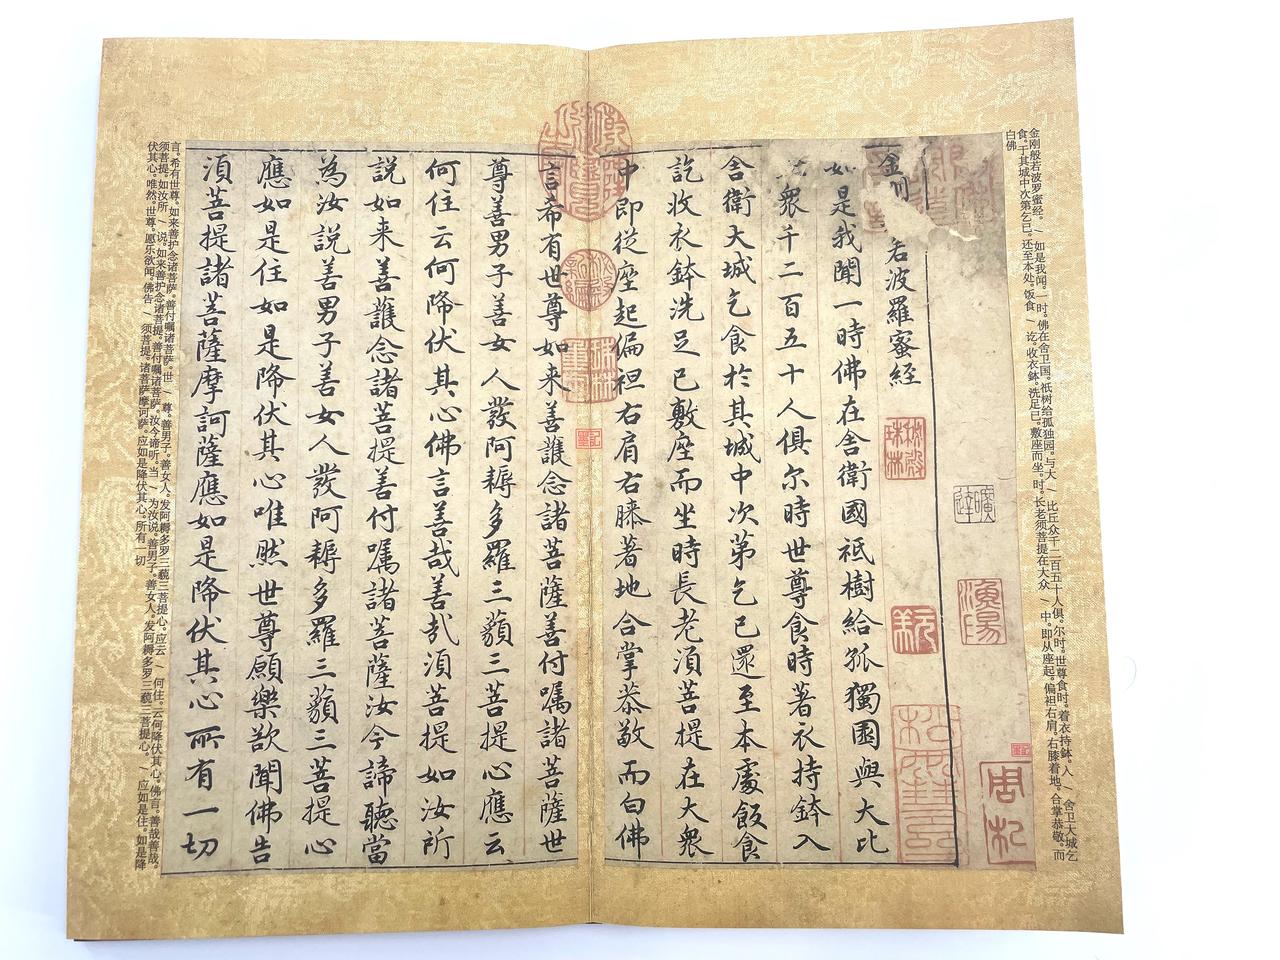 金刚般若波罗蜜经。/ 如是我闻。一时。佛在舍卫国。祇树给孤独园。与大 / 比丘众千二百五十人俱。尔时。世尊食时。着衣持鉢。入 / 舍卫大城乞
食。于其城中次第乞已。还至本处。饭食 / 讫。收衣鉢。洗足已。敷座而坐。时。长老须菩提在大众 / 中。即从座起。偏袒右肩。右膝着地。合掌恭敬。而
白佛
漁陽
金 若波羅蜜經
如是我聞一時佛在舍衛國祇樹給孤獨園與大比
衆千二百五十人俱尔時世尊食時著衣持鉢入
舍衛大城乞食於其城中次第乞已還至本處飯食
訖收衣鉢洗足已敷座而坐時長老湏菩提在大衆
中即從座起偏袒右肩右膝著地合掌恭敬而白佛
言希有世尊如来善護念諸菩薩善付嘱諸菩薩世
尊善男子善女人發阿耨多羅三藐三菩提心應云
何住云何降伏其心佛言善哉善哉湏菩提如汝所
説如来善護念諸菩提善付嘱諸菩薩汝今諦聽當
為汝説善男子善女人發阿耨多羅三藐三菩提心
應如是住如是降伏其心唯然世尊願樂欲聞佛告
湏菩提諸菩薩摩訶薩應如是降伏其心所有一切
言。希有世尊。如来善护念诸菩萨。善付嘱诸菩萨。世 / 尊。善男子。善女人。发阿耨多罗三藐三菩提心。应云 / 何住。云何降伏其心。佛言。善哉善哉。
须菩提。如汝所 / 说。如来善护念诸菩提。善付嘱诸菩萨。汝今谛听。当 / 为汝说。善男子。善女人。发阿耨多罗三藐三菩提心。/ 应如是住。如是降
伏其心。唯然。世尊。愿乐欲闻。佛告 / 须菩提。诸菩萨摩诃萨。应如是降伏其心。所有一切